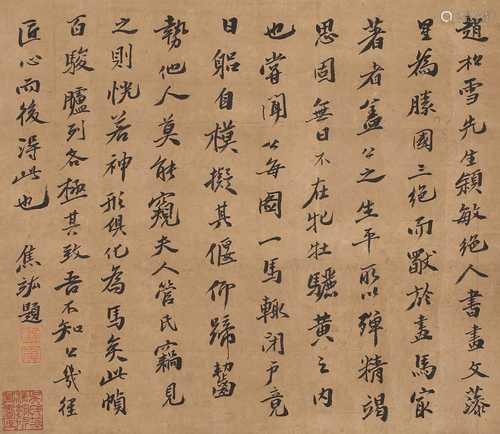 趙松雪先生穎敏絕人書畫文藻
為勝國三絕而於畫馬最
著者蓋公之生平所以殫精竭
思固無日不在牝牡驪黃之內
也嘗聞公每圖一馬輒閉戶竟
日躬自模擬其偃仰蹄齧
勢他人莫能窺夫人管氏竊見
之則恍若神形俱化為馬矣此幀
百駿臚列各極其致吾不知公幾經
匠心而後得此也 焦竑題